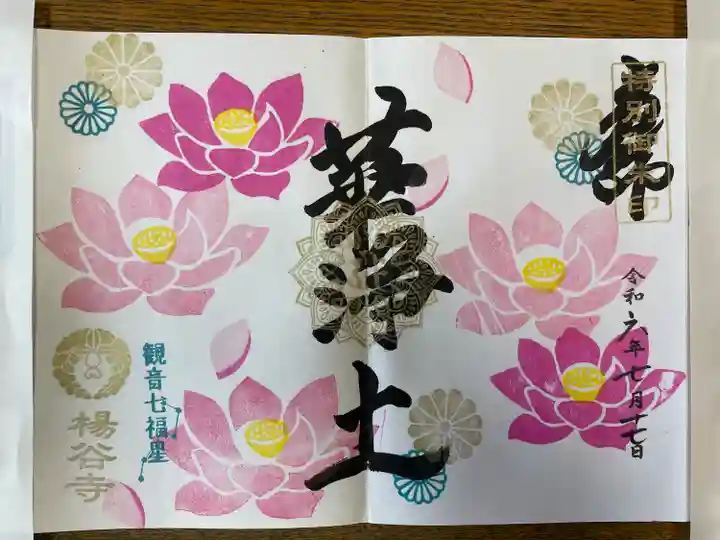 奉拝
特別御朱印
令和六年七月十七日
華浄土
観音七福星
楊谷寺